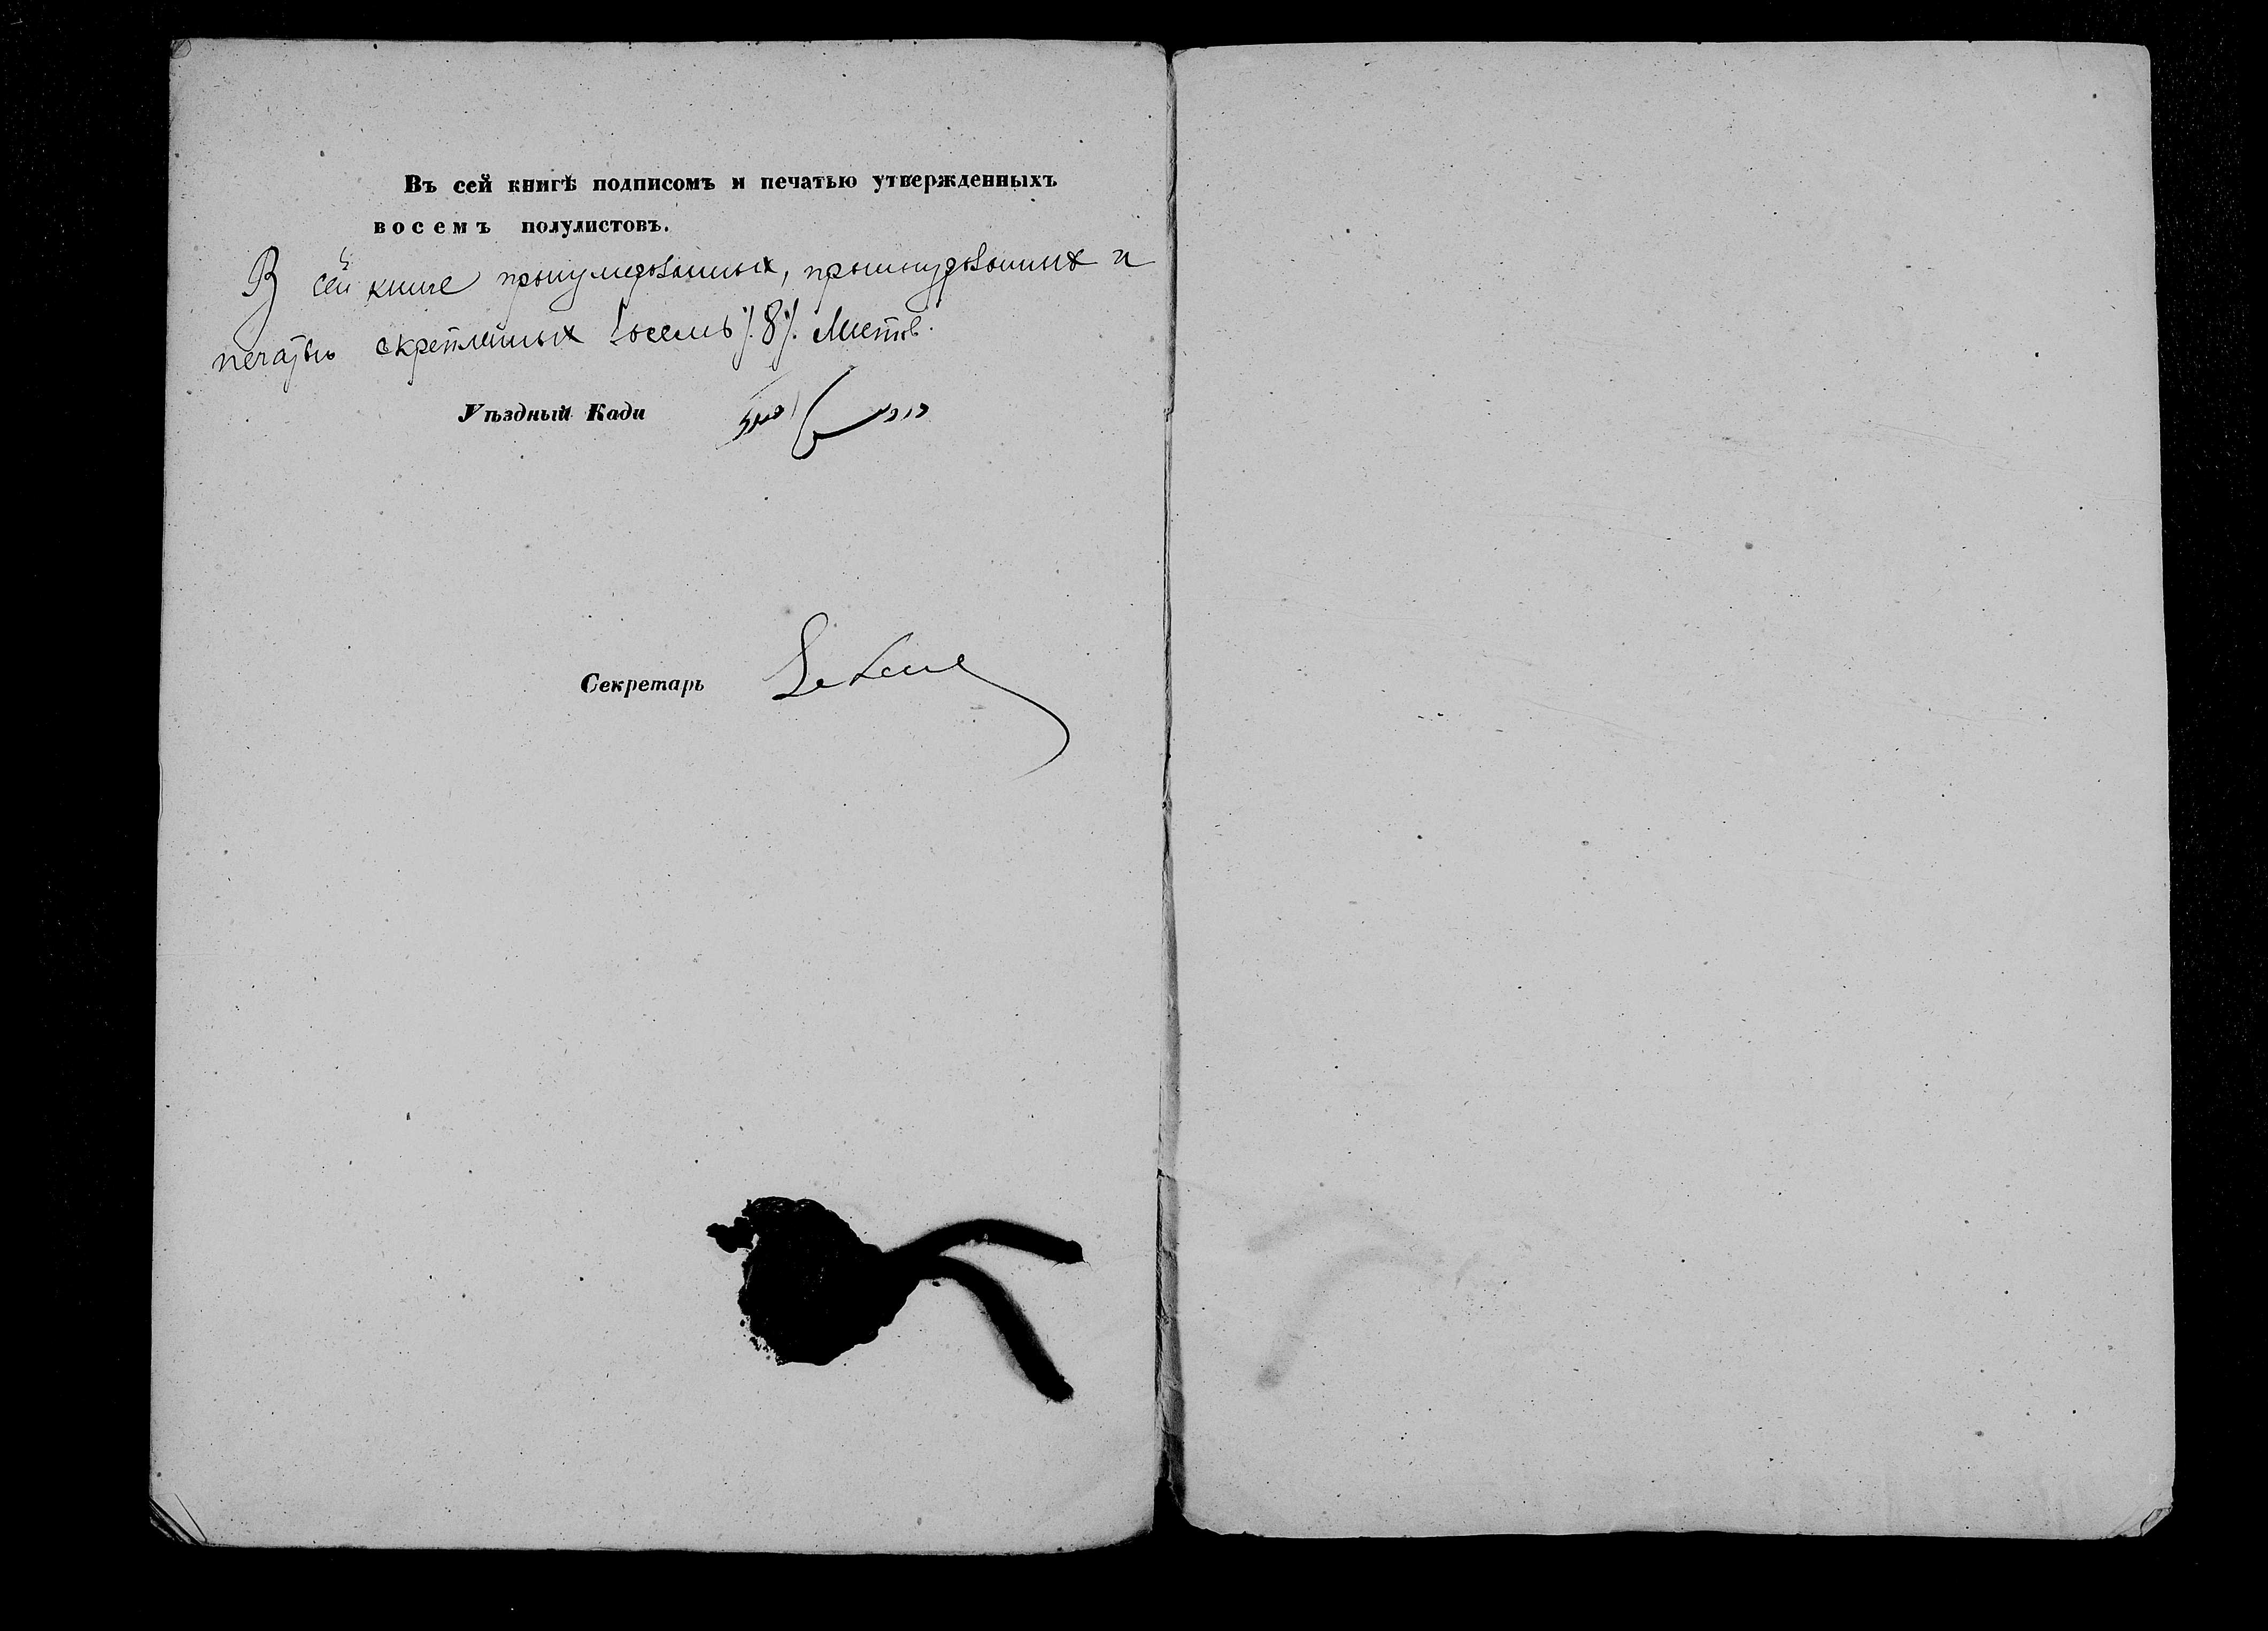 Въ сей книгѣ подписомъ и печатью утвержденныхъ
восемъ полулистовъ.
В сей книге пронумерованных, прошнурованных и
печатью скрепленных восемь /8/. листов.
Уѣздный Кади
Секретарь